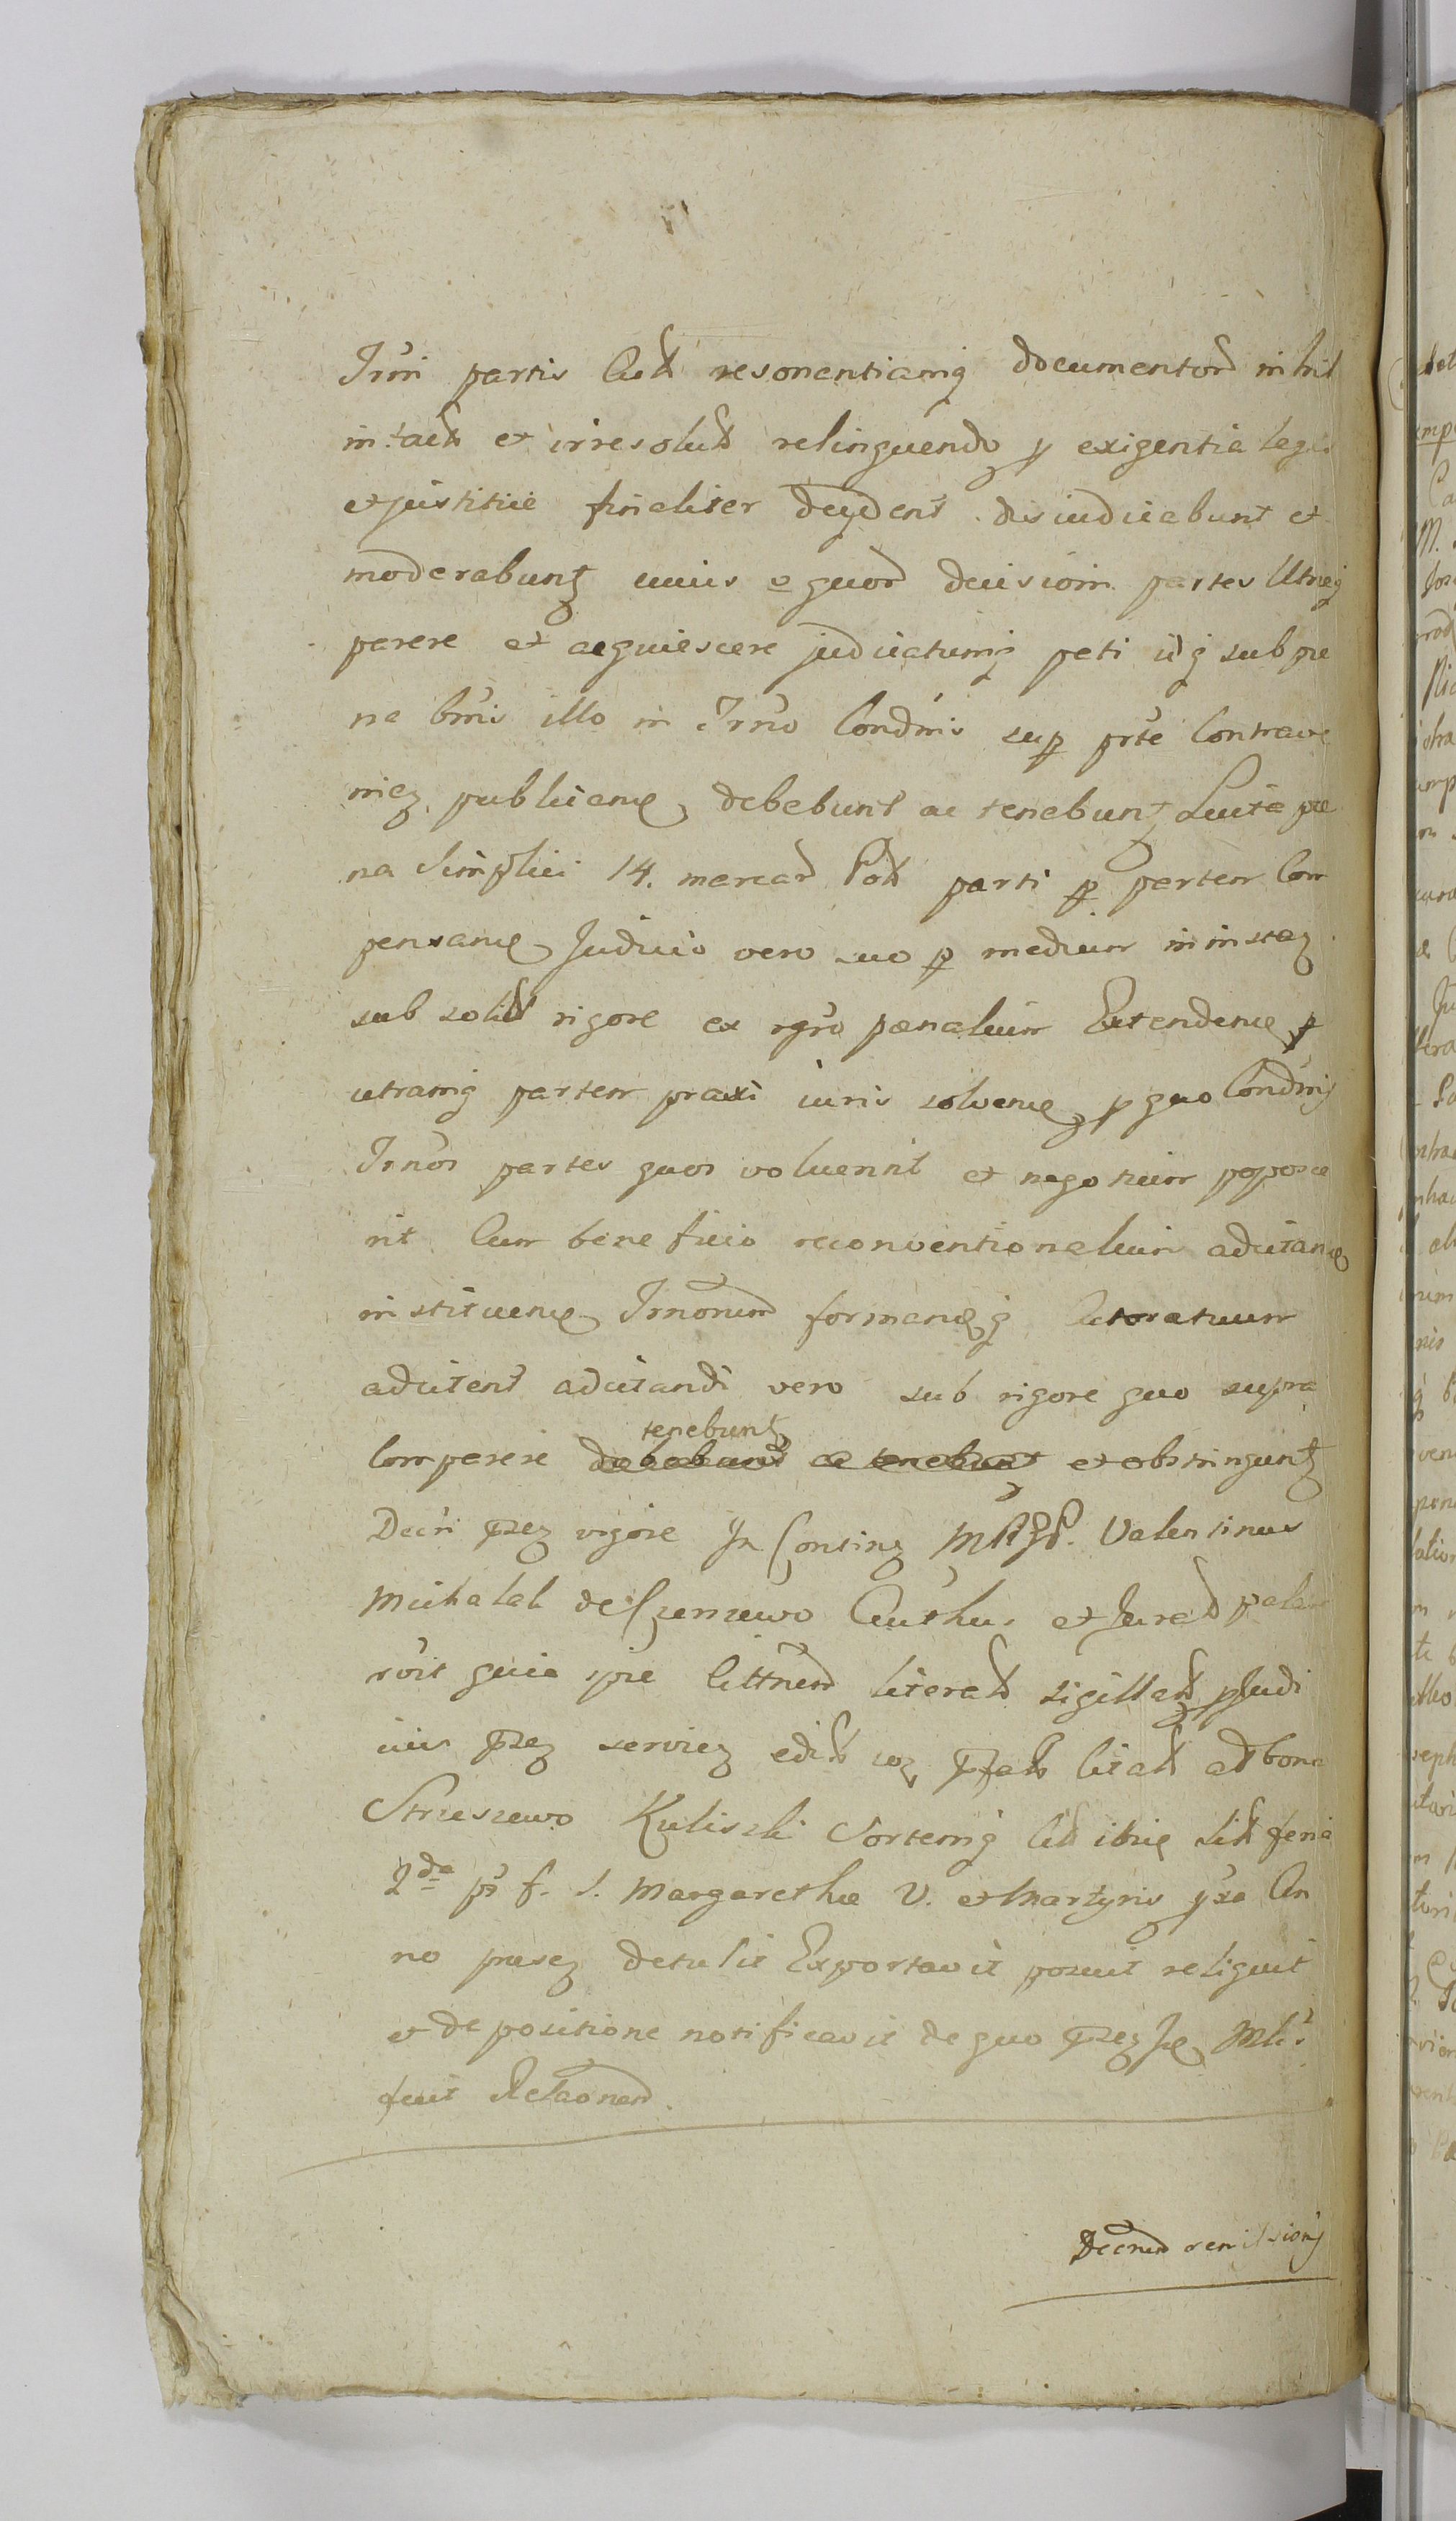 Trni partis resonentiamq documentor nihil
intact et irresolut relinquendo p exigentia legis
et justitiae finaliter decydent disiudicabunt et
moderabunt cuius quor decisioni partes Utraeq
parere et acquiescere judicatumq peti sub pae
na bnis illo in Trno Condnis sup prte Contrave
niez publicane debebunt ac tenebunt Luita pae
na Simplici 14. marcar Pol parti p partem Com
pensane Judicio vero suo p medium in instaz
sub solit rigore ex rgro paenalium Extendene p
utramq partem praxi iuris solvene p quo Condnis
Trnor partes quos voluerint et negotium popose
rit Cum beneficio reconventionalium adcitane
instituene Trnorum formaneq Actoratuum
adcitent adcitandi vero sub rigore quo supra
tenebunt
Comparere debebunt ac tenebunt et obstringunt
Decri przez vigore In Contin Valentinus
Michalak de Authus et Jurat palam
roit quia ipse literat sigillat p Judi
ciu przez serviez edit litat ad bona
Strzeszewo Kuliszki Sortemq ibiq sit feria
2da p f. S. Margarethae V. et Martyris pxa An
no praesez detulit Exportavit posuit reliquit
et de positione notificavit de quo
fecit Relaonem.
Decrum remissionis